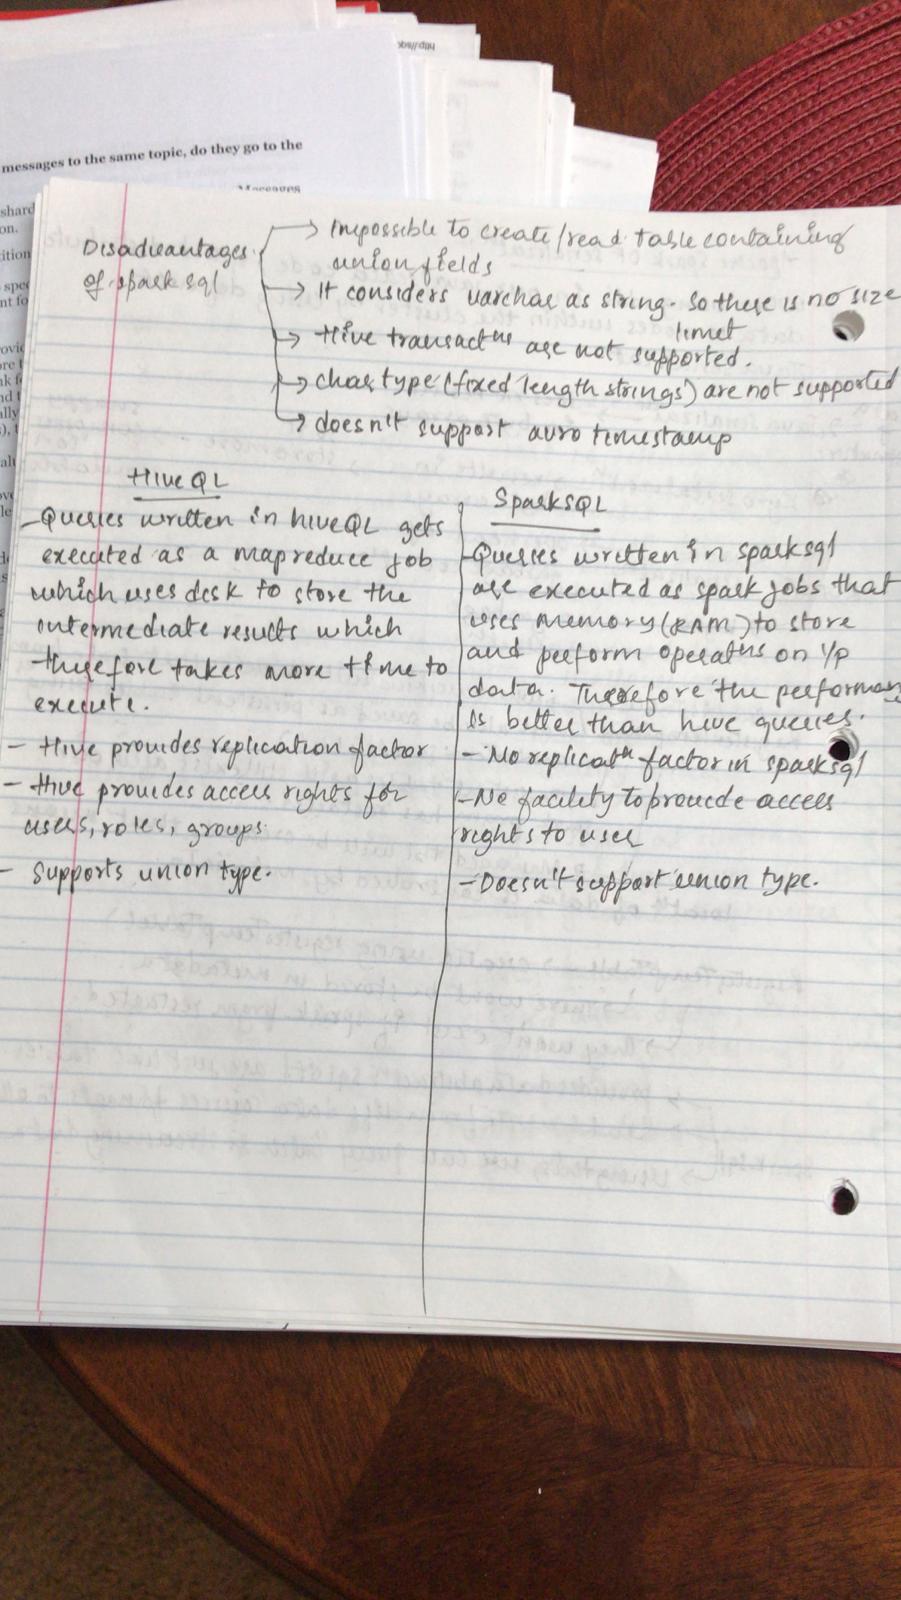 messages to the same topic, do they go to the
Messages
Disadvantages
of spark sql
→ Impossible to create/read table containing
union fields
→ It considers varchar as string. So there is no size
limit
→ Hive transactns are not supported.
→ char type (fixed length strings) are not supported
→ doesn't support avro timestamp
Hive QL
- Queries written in hiveQL gets
executed as a mapreduce job
which uses disk to store the
intermediate results which
therefore takes more time to
execute.
- Hive provides replication factor
- Hive provides access rights for
users, roles, groups
- Supports union type.
SparkSQL
- Queries written in sparksql
are executed as spark jobs that
uses memory (RAM) to store
and perform operatns on i/p
data. Therefore the performan
is better than hive queries.
- No replicatn factor in sparksql
- No facility to provide access
rights to user
- Doesn't support union type.